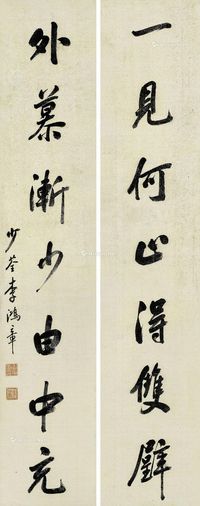 一見何止得雙壁
外慕漸少由中充
少荃李鴻章